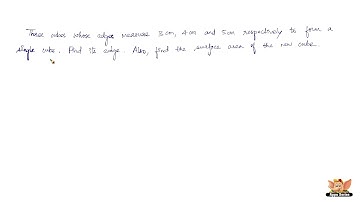 Three cubes whose edges measure 3 cm, 4 cm and 5 cm respectively to form a
single cube. Find its edge. Also, find the surface area of the new cube.